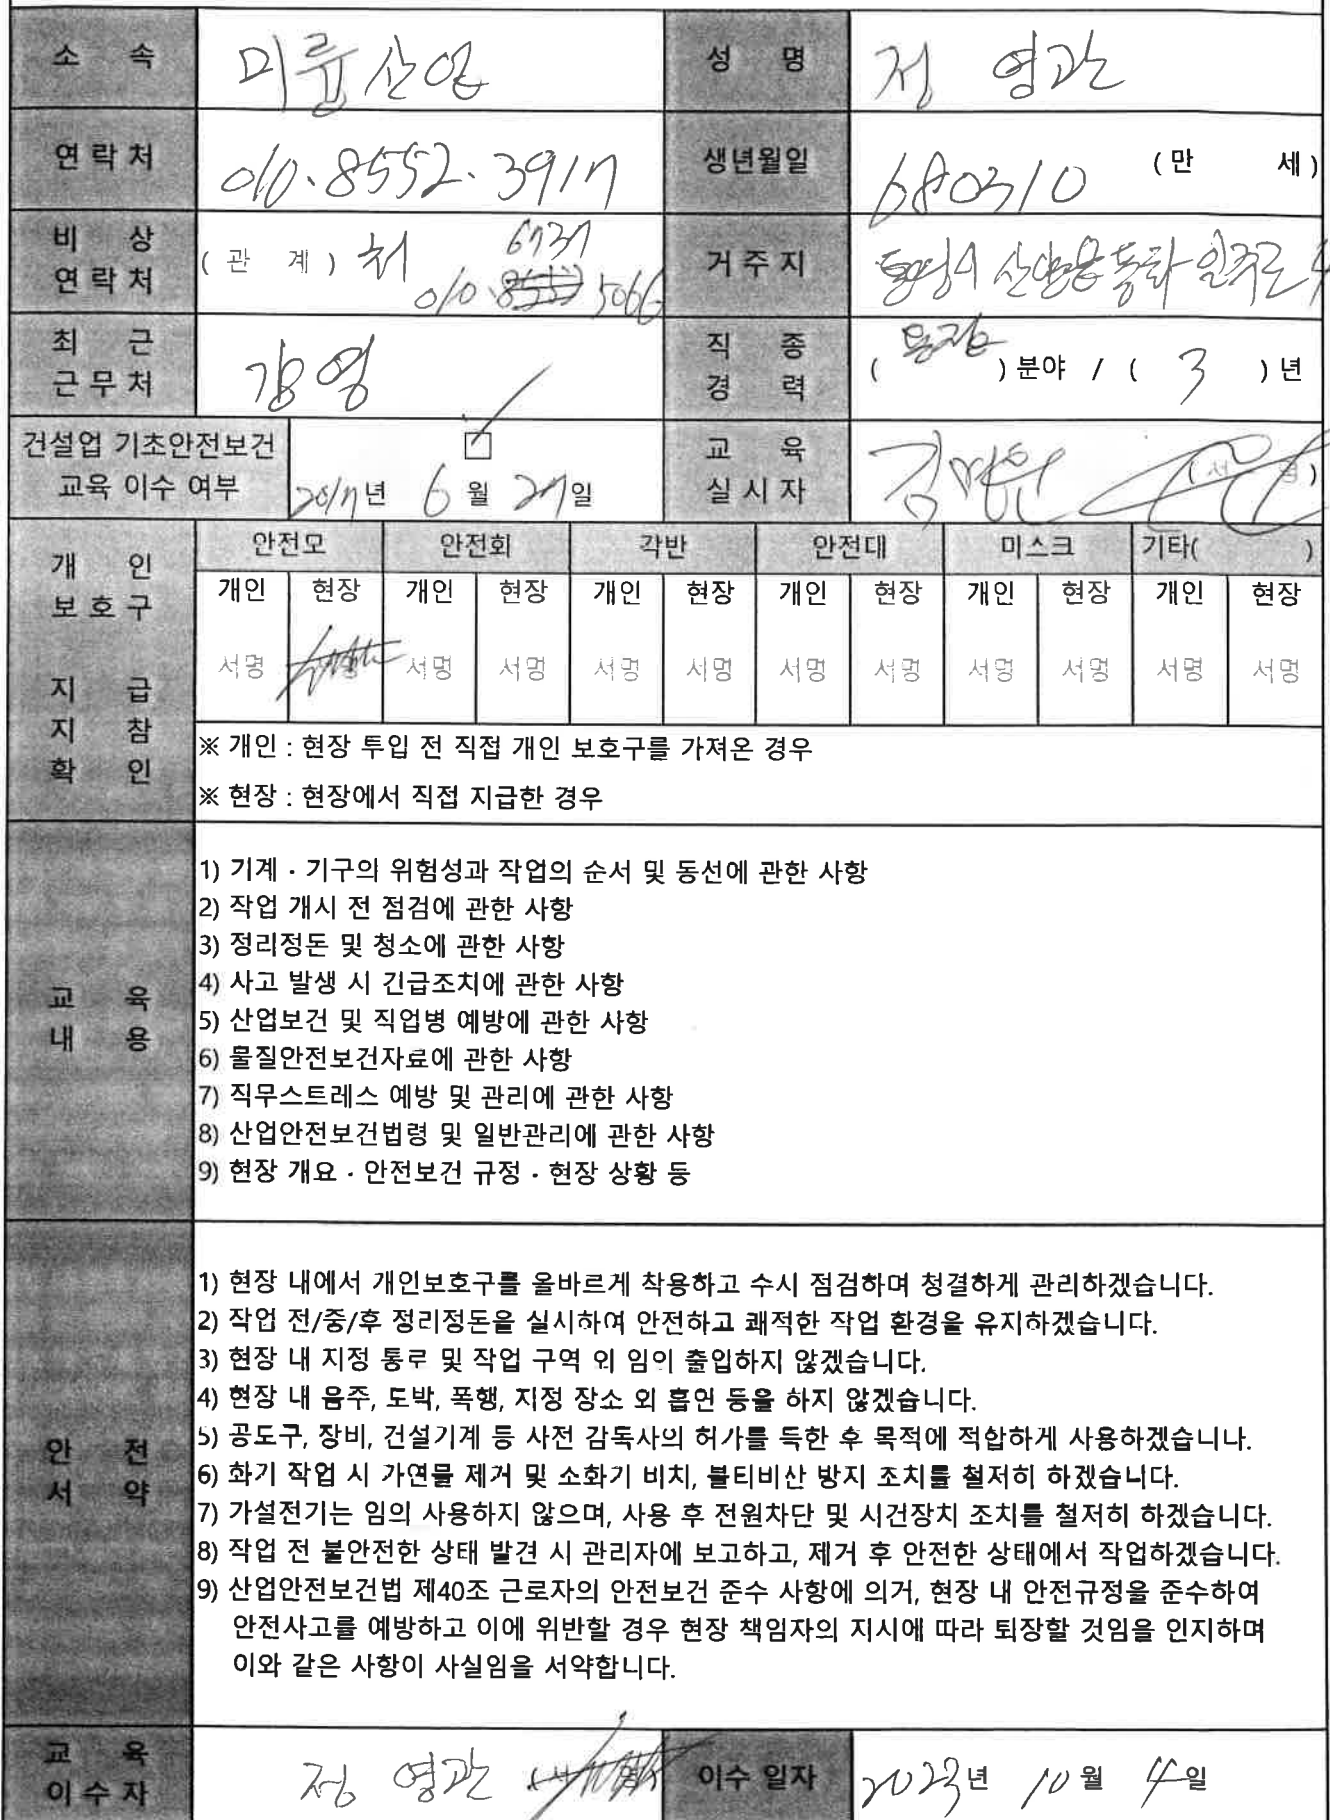 소 속 미륭산업 성 명 정 영관
연락처 010.8552.3917 생년월일 680310 (만 세)
비 상 연락처 (관 계) 처 6737 010. 5066 거주지 통영시 산양읍 풍화 일주로
최 근 근무처 강영 직 종 경 력 ( 용접 ) 분야 / ( 3 ) 년
건설업 기초안전보건 교육 이수 여부 2017년 6월 27일 교 육 실시자 (서 명)
개 인 보호구 지 급 지 참 확 인
안전모 안전화 각반 안전대 미스크 기타( )
개인 현장 개인 현장 개인 현장 개인 현장 개인 현장 개인 현장
서명 서명 서명 서명 서명 서명 서명 서명 서명 서명 서명
※ 개인 : 현장 투입 전 직접 개인 보호구를 가져온 경우
※ 현장 : 현장에서 직접 지급한 경우
교 육 내 용
1) 기계 · 기구의 위험성과 작업의 순서 및 동선에 관한 사항
2) 작업 개시 전 점검에 관한 사항
3) 정리정돈 및 청소에 관한 사항
4) 사고 발생 시 긴급조치에 관한 사항
5) 산업보건 및 직업병 예방에 관한 사항
6) 물질안전보건자료에 관한 사항
7) 직무스트레스 예방 및 관리에 관한 사항
8) 산업안전보건법령 및 일반관리에 관한 사항
9) 현장 개요 · 안전보건 규정 · 현장 상황 등
안 전 서 약
1) 현장 내에서 개인보호구를 올바르게 착용하고 수시 점검하며 청결하게 관리하겠습니다.
2) 작업 전/중/후 정리정돈을 실시하여 안전하고 쾌적한 작업 환경을 유지하겠습니다.
3) 현장 내 지정 통로 및 작업 구역 외 임의 출입하지 않겠습니다.
4) 현장 내 음주, 도박, 폭행, 지정 장소 외 흡연 등을 하지 않겠습니다.
5) 공도구, 장비, 건설기계 등 사전 감독사의 허가를 득한 후 목적에 적합하게 사용하겠습니다.
6) 화기 작업 시 가연물 제거 및 소화기 비치, 불티비산 방지 조치를 철저히 하겠습니다.
7) 가설전기는 임의 사용하지 않으며, 사용 후 전원차단 및 시건장치 조치를 철저히 하겠습니다.
8) 작업 전 불안전한 상태 발견 시 관리자에 보고하고, 제거 후 안전한 상태에서 작업하겠습니다.
9) 산업안전보건법 제40조 근로자의 안전보건 준수 사항에 의거, 현장 내 안전규정을 준수하여
안전사고를 예방하고 이에 위반할 경우 현장 책임자의 지시에 따라 퇴장할 것임을 인지하며
이와 같은 사항이 사실임을 서약합니다.
교 육 이수자 정 영관 이수 일자 2023년 10월 4일